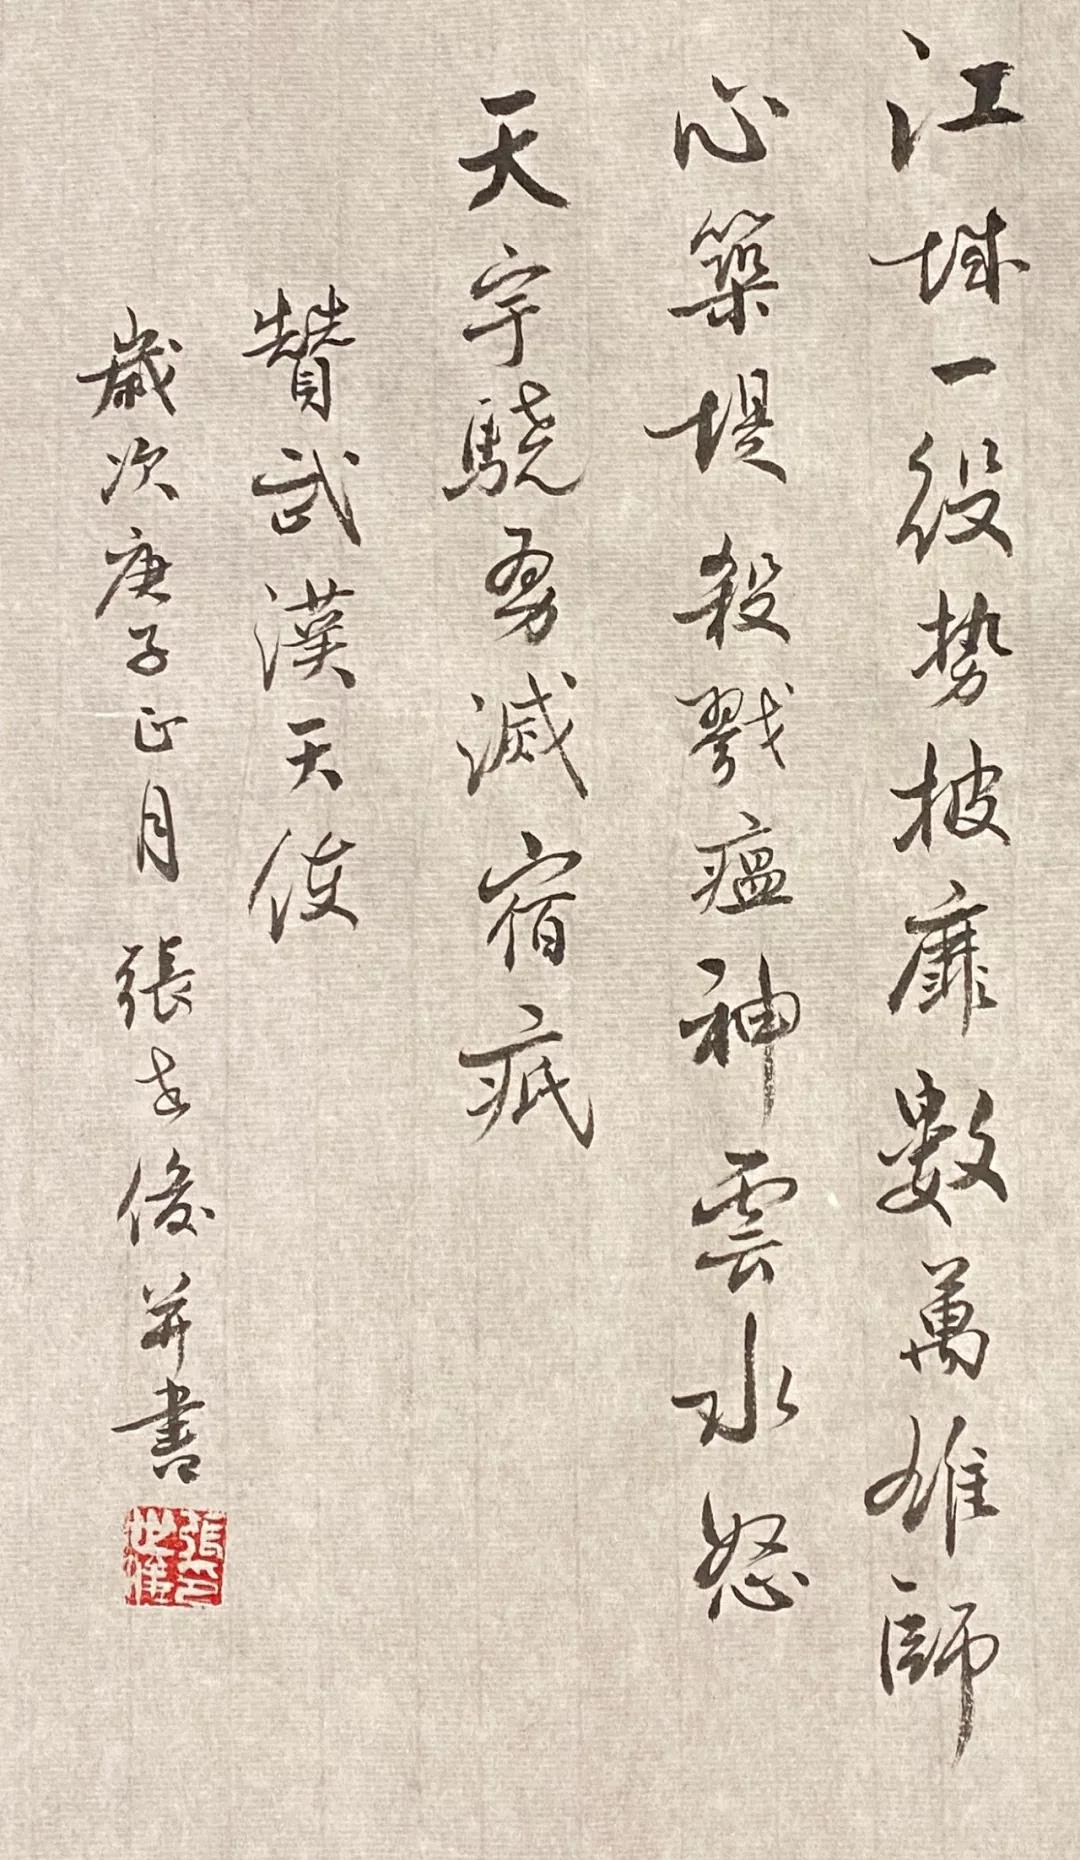 江城一役势披靡數萬雄師
心築堤殺戮瘟神雲水怒
天宇驍勇滅宿疧
贊武漢天使
歲次庚子正月張世俊并書
張印世俊